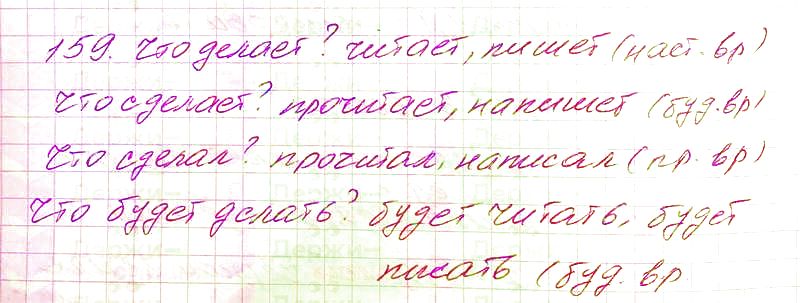 159. Что делает? читает, пишет (наст. вр)
Что сделает? прочитает, напишет (буд. вр)
Что сделал? прочитал, написал (пр. вр)
Что будет делать? будет читать, будет
писать (буд. вр